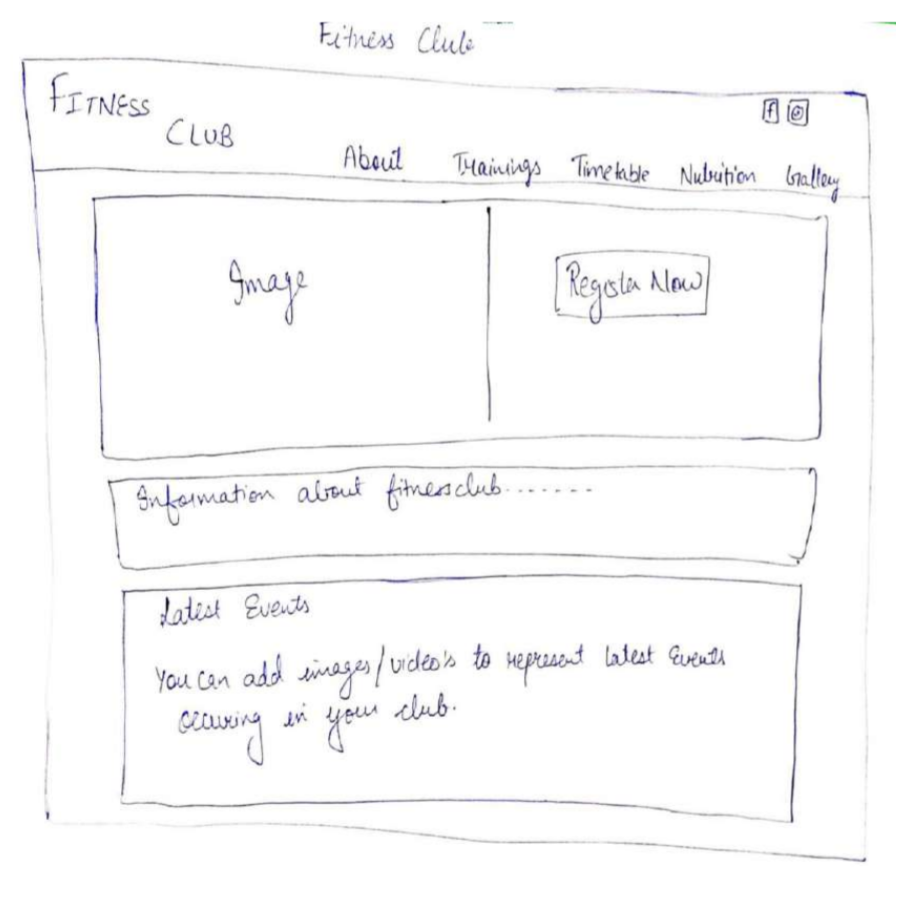 Fitness Club
FITNESS
CLUB
f
About Trainings Timetable Nutrition Gallery
Image
Register Now
Information about fitnessclub.......
Latest Events
You can add images/video's to represent latest Events
occuring in your club.